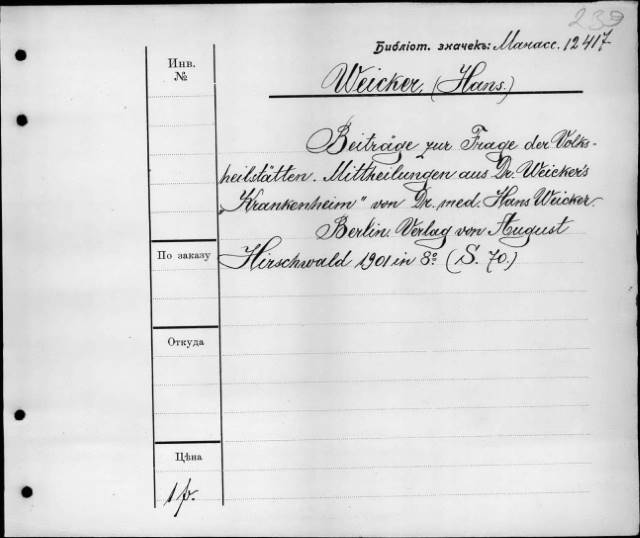 239
Библіот. значекъ: Манасс. 12417
Инв.
№
Weicker, (Hans.)
Beiträge zur Frage der Volks-
heilstätten. Mittheilungen aus Dr. Weicker's
„Krankenheim" von Dr. med. Hans Weicker.
Berlin. Verlag von August
По заказу
Hirschwald 1901 in 8º. (S. 70.)
Откуда
Цѣна
1 р.